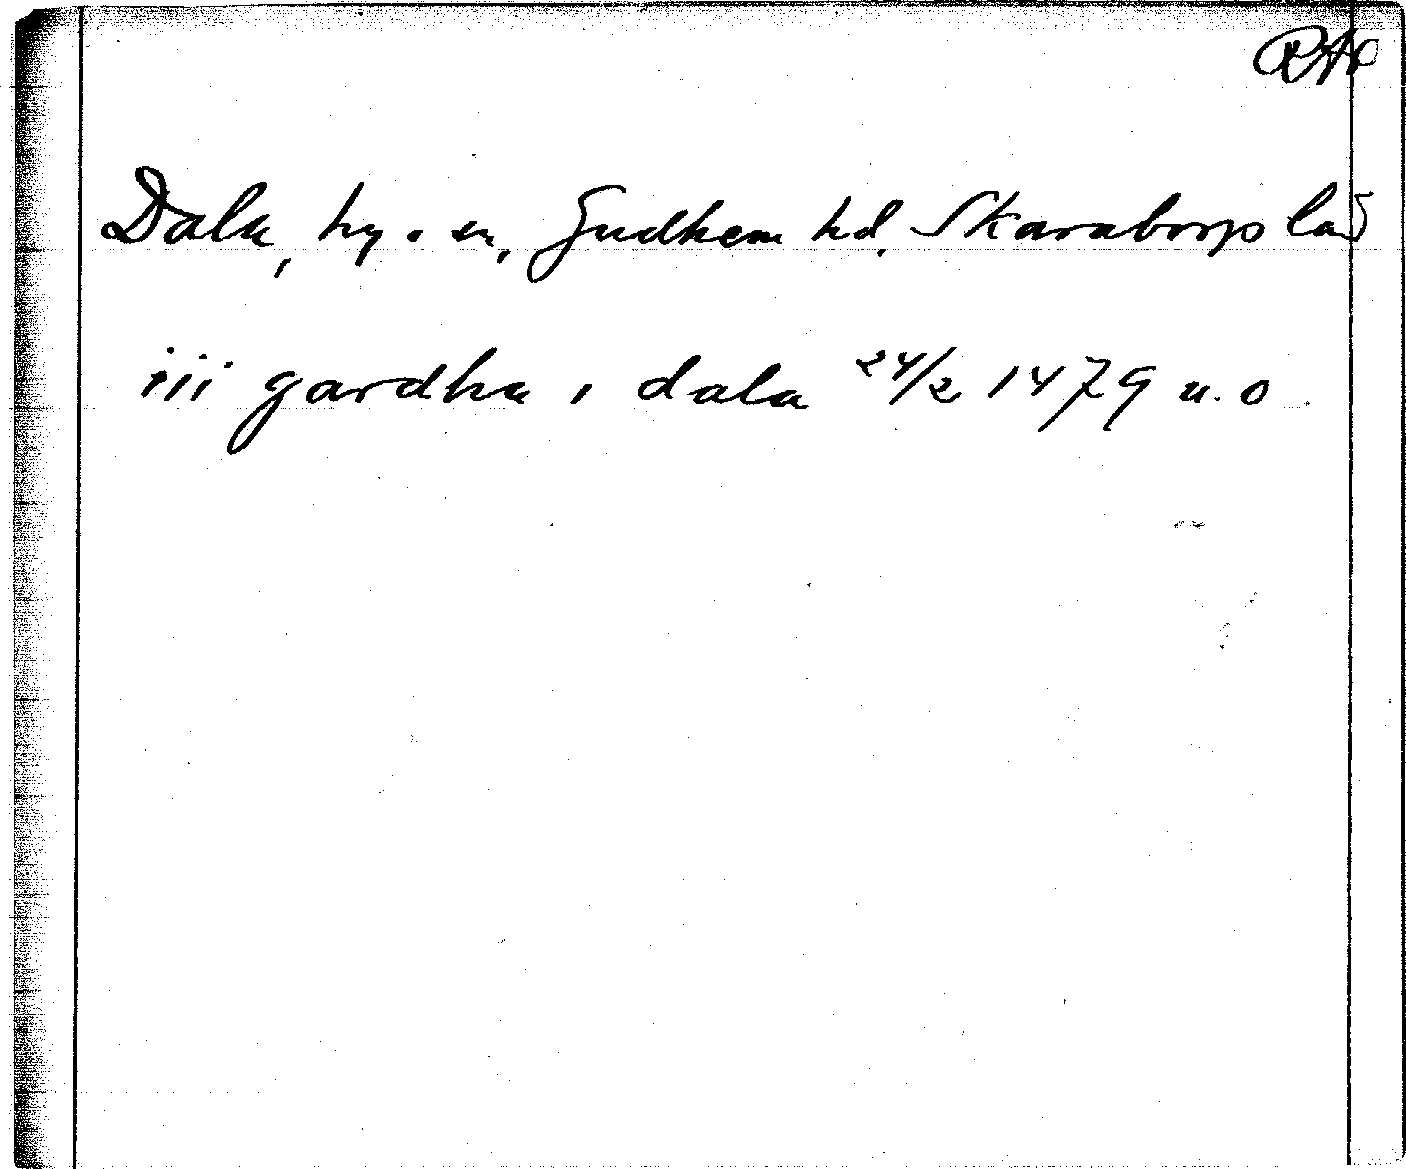 RAP
Dala, by o. sn, Gudhem hd, Skaraborgs län
iii gardha i dala 24/2 1479 u. o